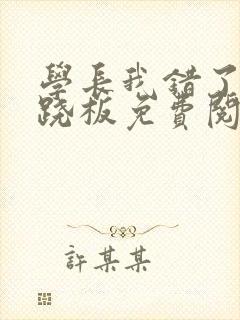 學長我錯了
跷板免費閱
許某某